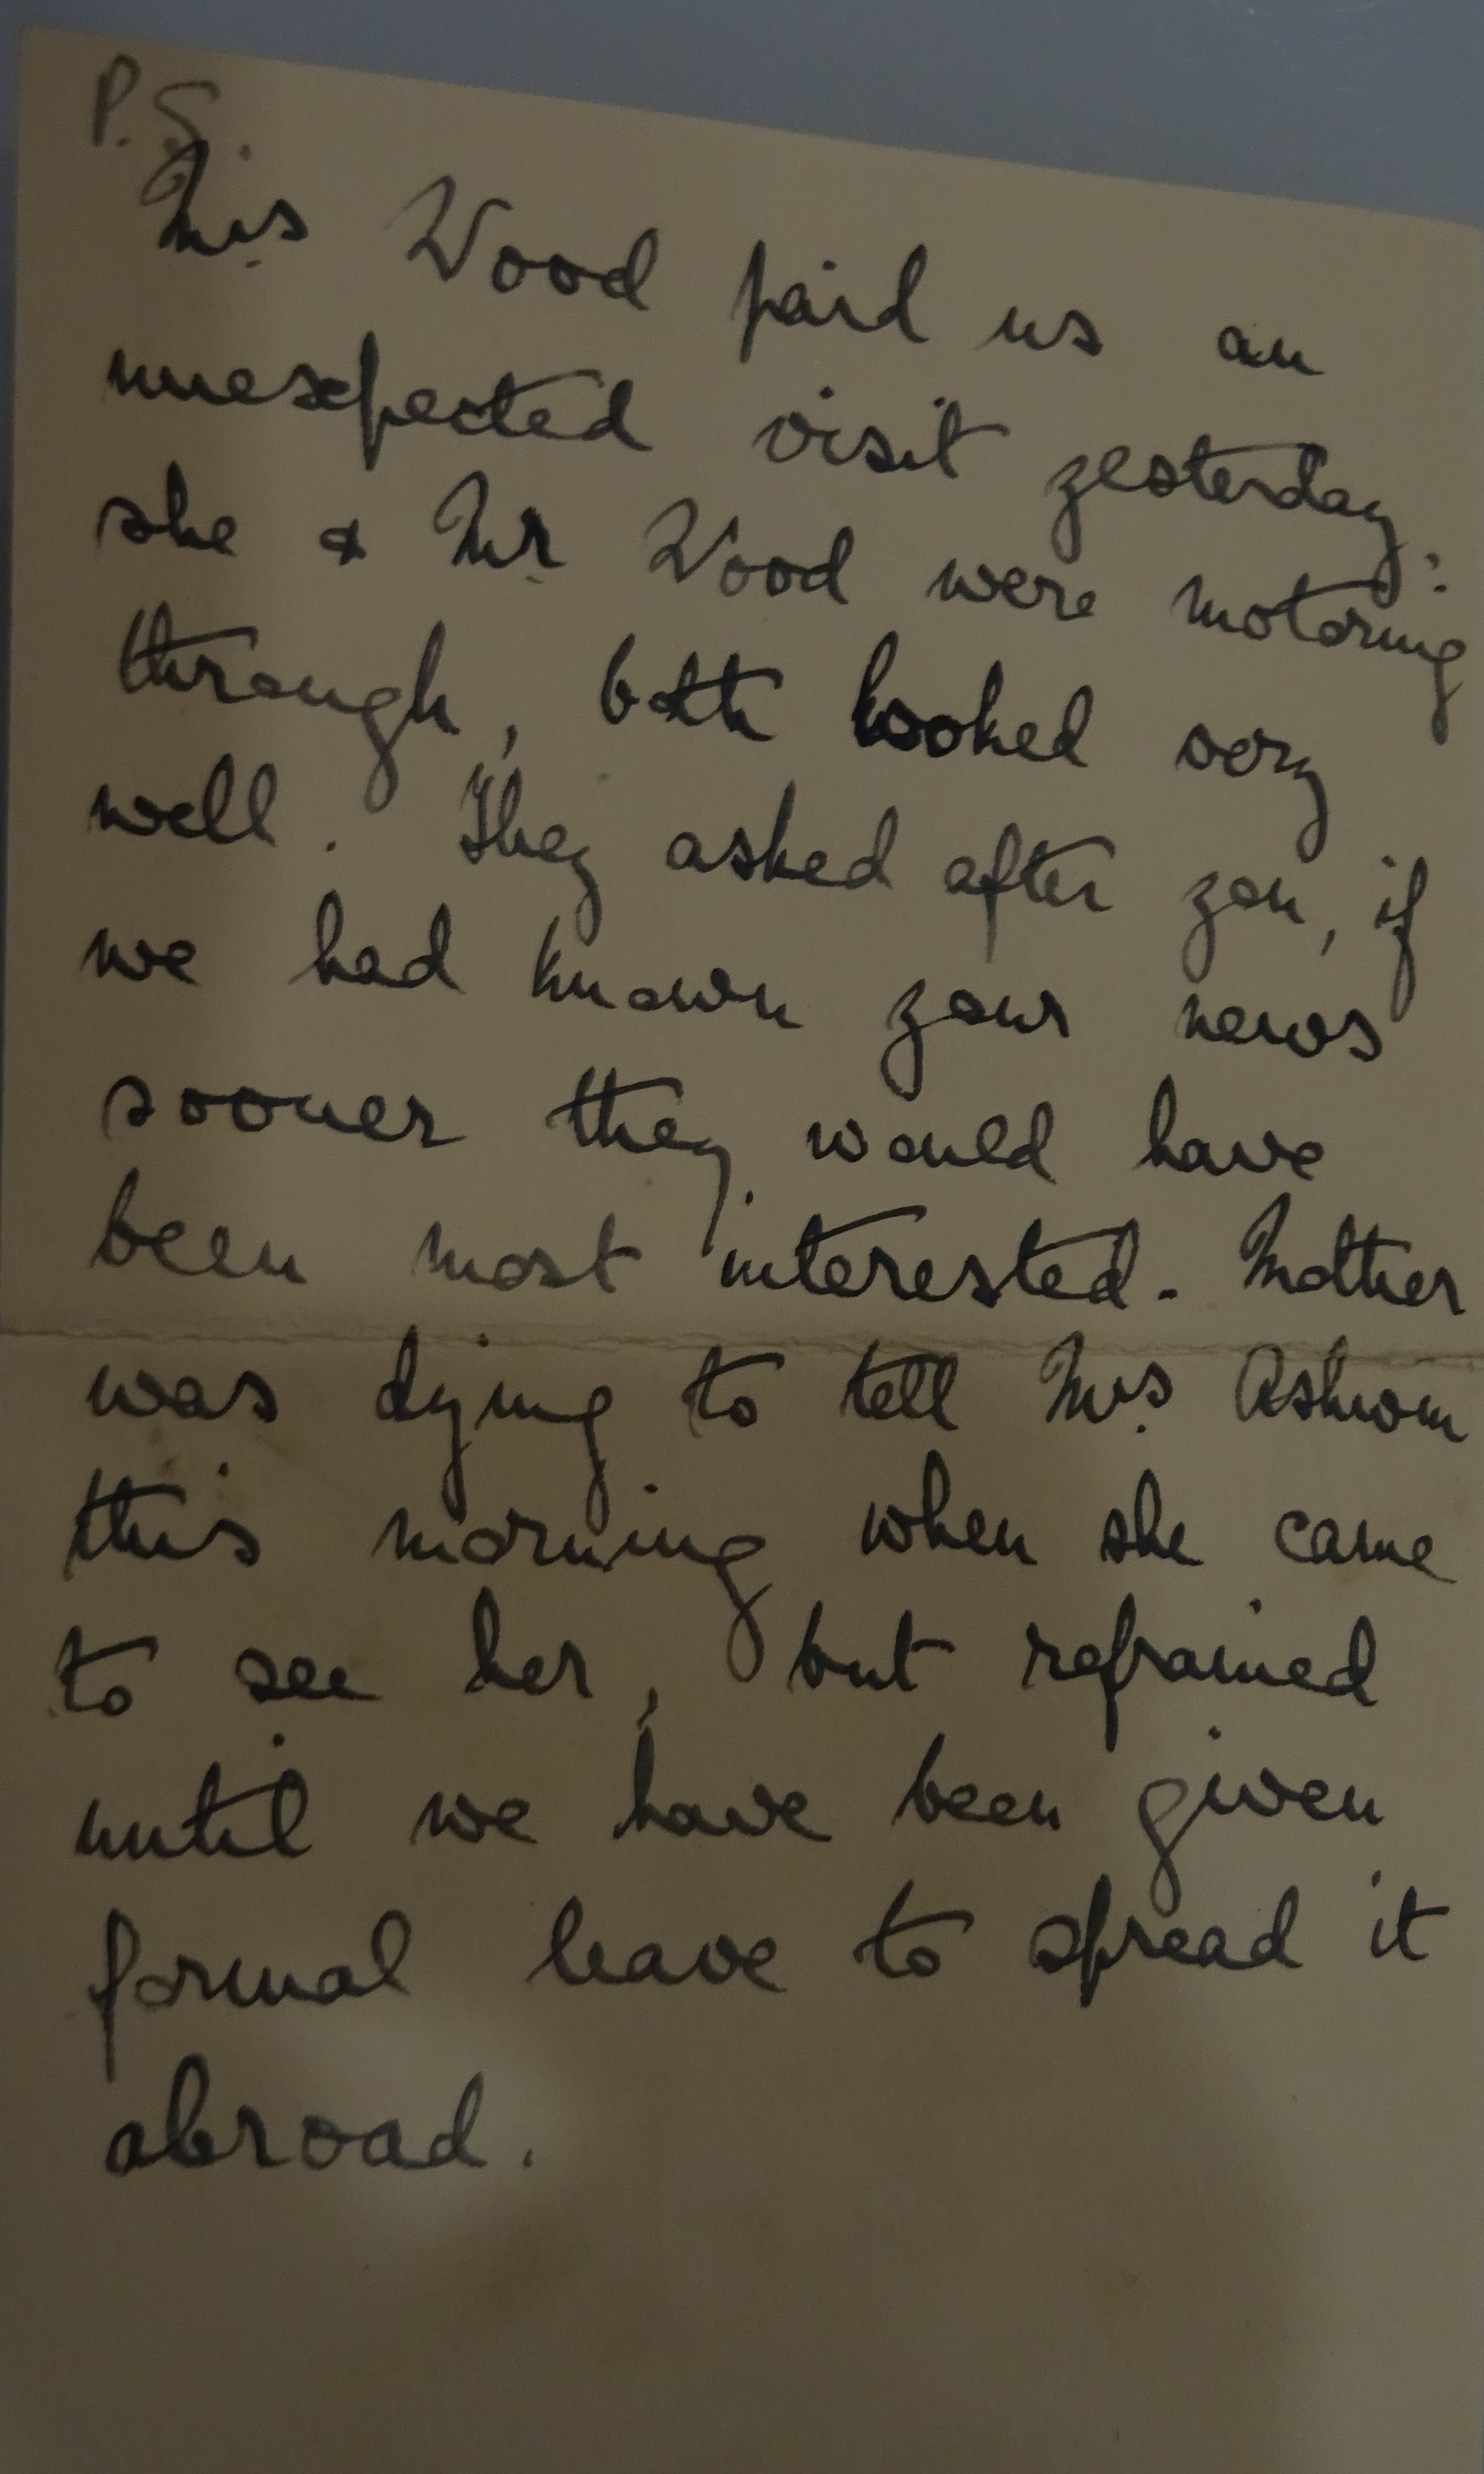 P.S.
Mrs Wood paid us an
unexpected visit yesterday:
she & Mr Wood were motoring
through, both looked very
well. They asked after you, if
we had known your news
sooner they would have
been most interested. Mother
was dying to tell Mrs
this morning when she came
to see her, but refrained
until we have been given
formal leave to spread it
abroad.